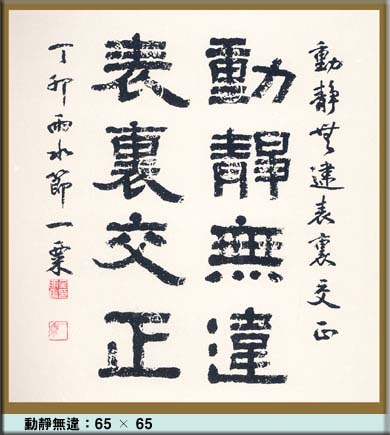 動靜無違表裏交正
動靜無違
表裏交正
丁卯雨水節一粟
動靜無違：65 × 65